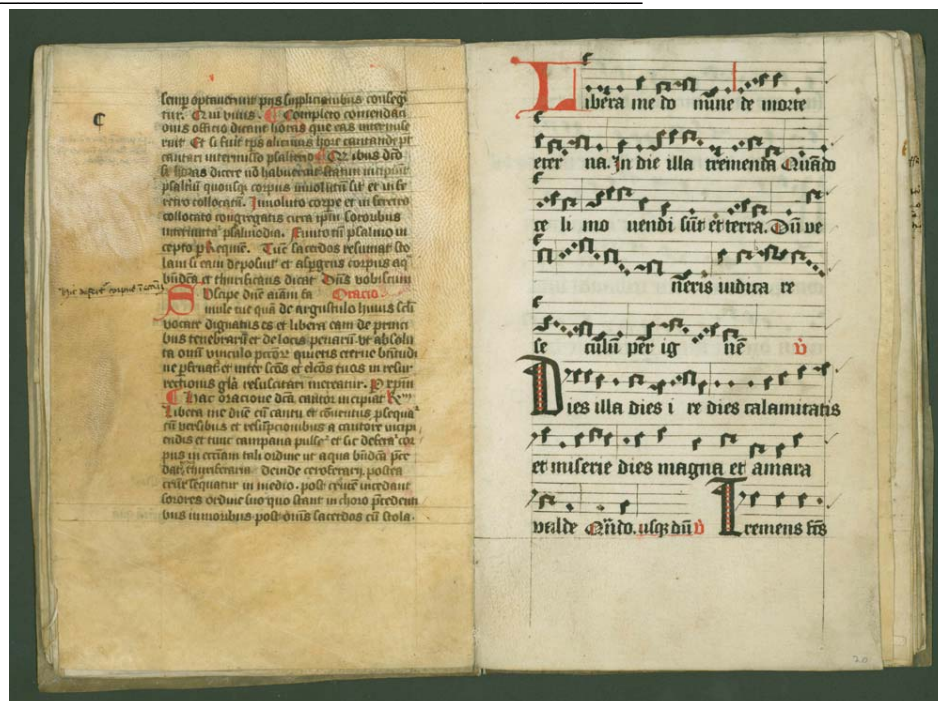 semp optauerunt pijs supplicationibus consequan
tur. Qui viuis. Completo comendati
onis officio dicant horas que eas intermise
rint Et si fuit tps alicuius hore cantande pt
cantari intermisso psalterio
si horas dicere nō habuerint statim incipiant
psalmū quousq; corpus inuolutū sit et in fe
retro collocatū. Inuoluto corpe et in feretro
collocato congregatis circa ipm sororibus
intermittāt psalmodia. finito tn̄ psalmo in
cepto p Requiē. Tūc sacerdos resumat sto
lam si eam deposuit et aspgens corpus aq̄
bn̄dcā et thurificans dicat Dn̄s vobiscum
Suscipe dn̄e aīam fa Oracio
mule tue quā de ergastulo huius scli
vocare dignatus es et libera eam de princi
bus tenebrarū et de locis penarū vt absolu
ta oīm vinculo pctōr quietis eterne btitudi
ne pfruat et inter scōs et elcōs tuos in resur
rectionis glā resuscitari mereatur. P xpm
Hac oracione dcā cantor incipiat
Libera me dn̄e cū cantu et conuentus psequat
cū versibus et resūpcionibus a cantore incipi
endis et tunc campana pulset et sic deferat cor
pus in ecciam tali ordine ut aqua bn̄dcā pre
dat thuriferaria deinde ceroferarij. postea
crux sequatur in medio. post crucē incedant
sorores ordine suo quo stant in choro precedenti
bus iunioribus post om̄s sacerdos cū stola.
Libera me do mine de morte
eter na. In die illa tremenda Quādo
ce li mo uendi sūt et terra. Dū ve
neris iudica re
se culū per ig nē v̄
Dies illa dies i re dies calamitatis
et miserie dies magna et amara
valde Qn̄do. usq; dū v̄ Tremens fcs
20